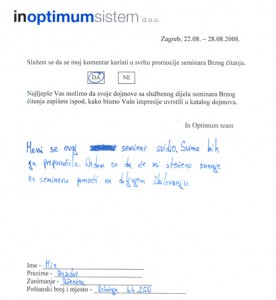 inoptimumsistem d.o.o.
Zagreb, 22.08. – 28.08.2008.
Slažem se da se moj komentar koristi u svrhu promocije seminara Brzog čitanja.
DA NE
Najljepše Vas molimo da svoje dojmove sa službenog dijela seminara Brzog
čitanja zapišete ispod, kako bismo Vaše impresije uvrstili u katalog dojmova.
In Optimum team
Meni se ovaj seminar svidio. Svima bih
ga preporučila. Nadam se da će mi stečeno znanje
na seminaru pomoći na daljnjem školovanju.
Ime -
Prezime -
Zanimanje - učenica
Poštanski broj i mjesto - 44 250